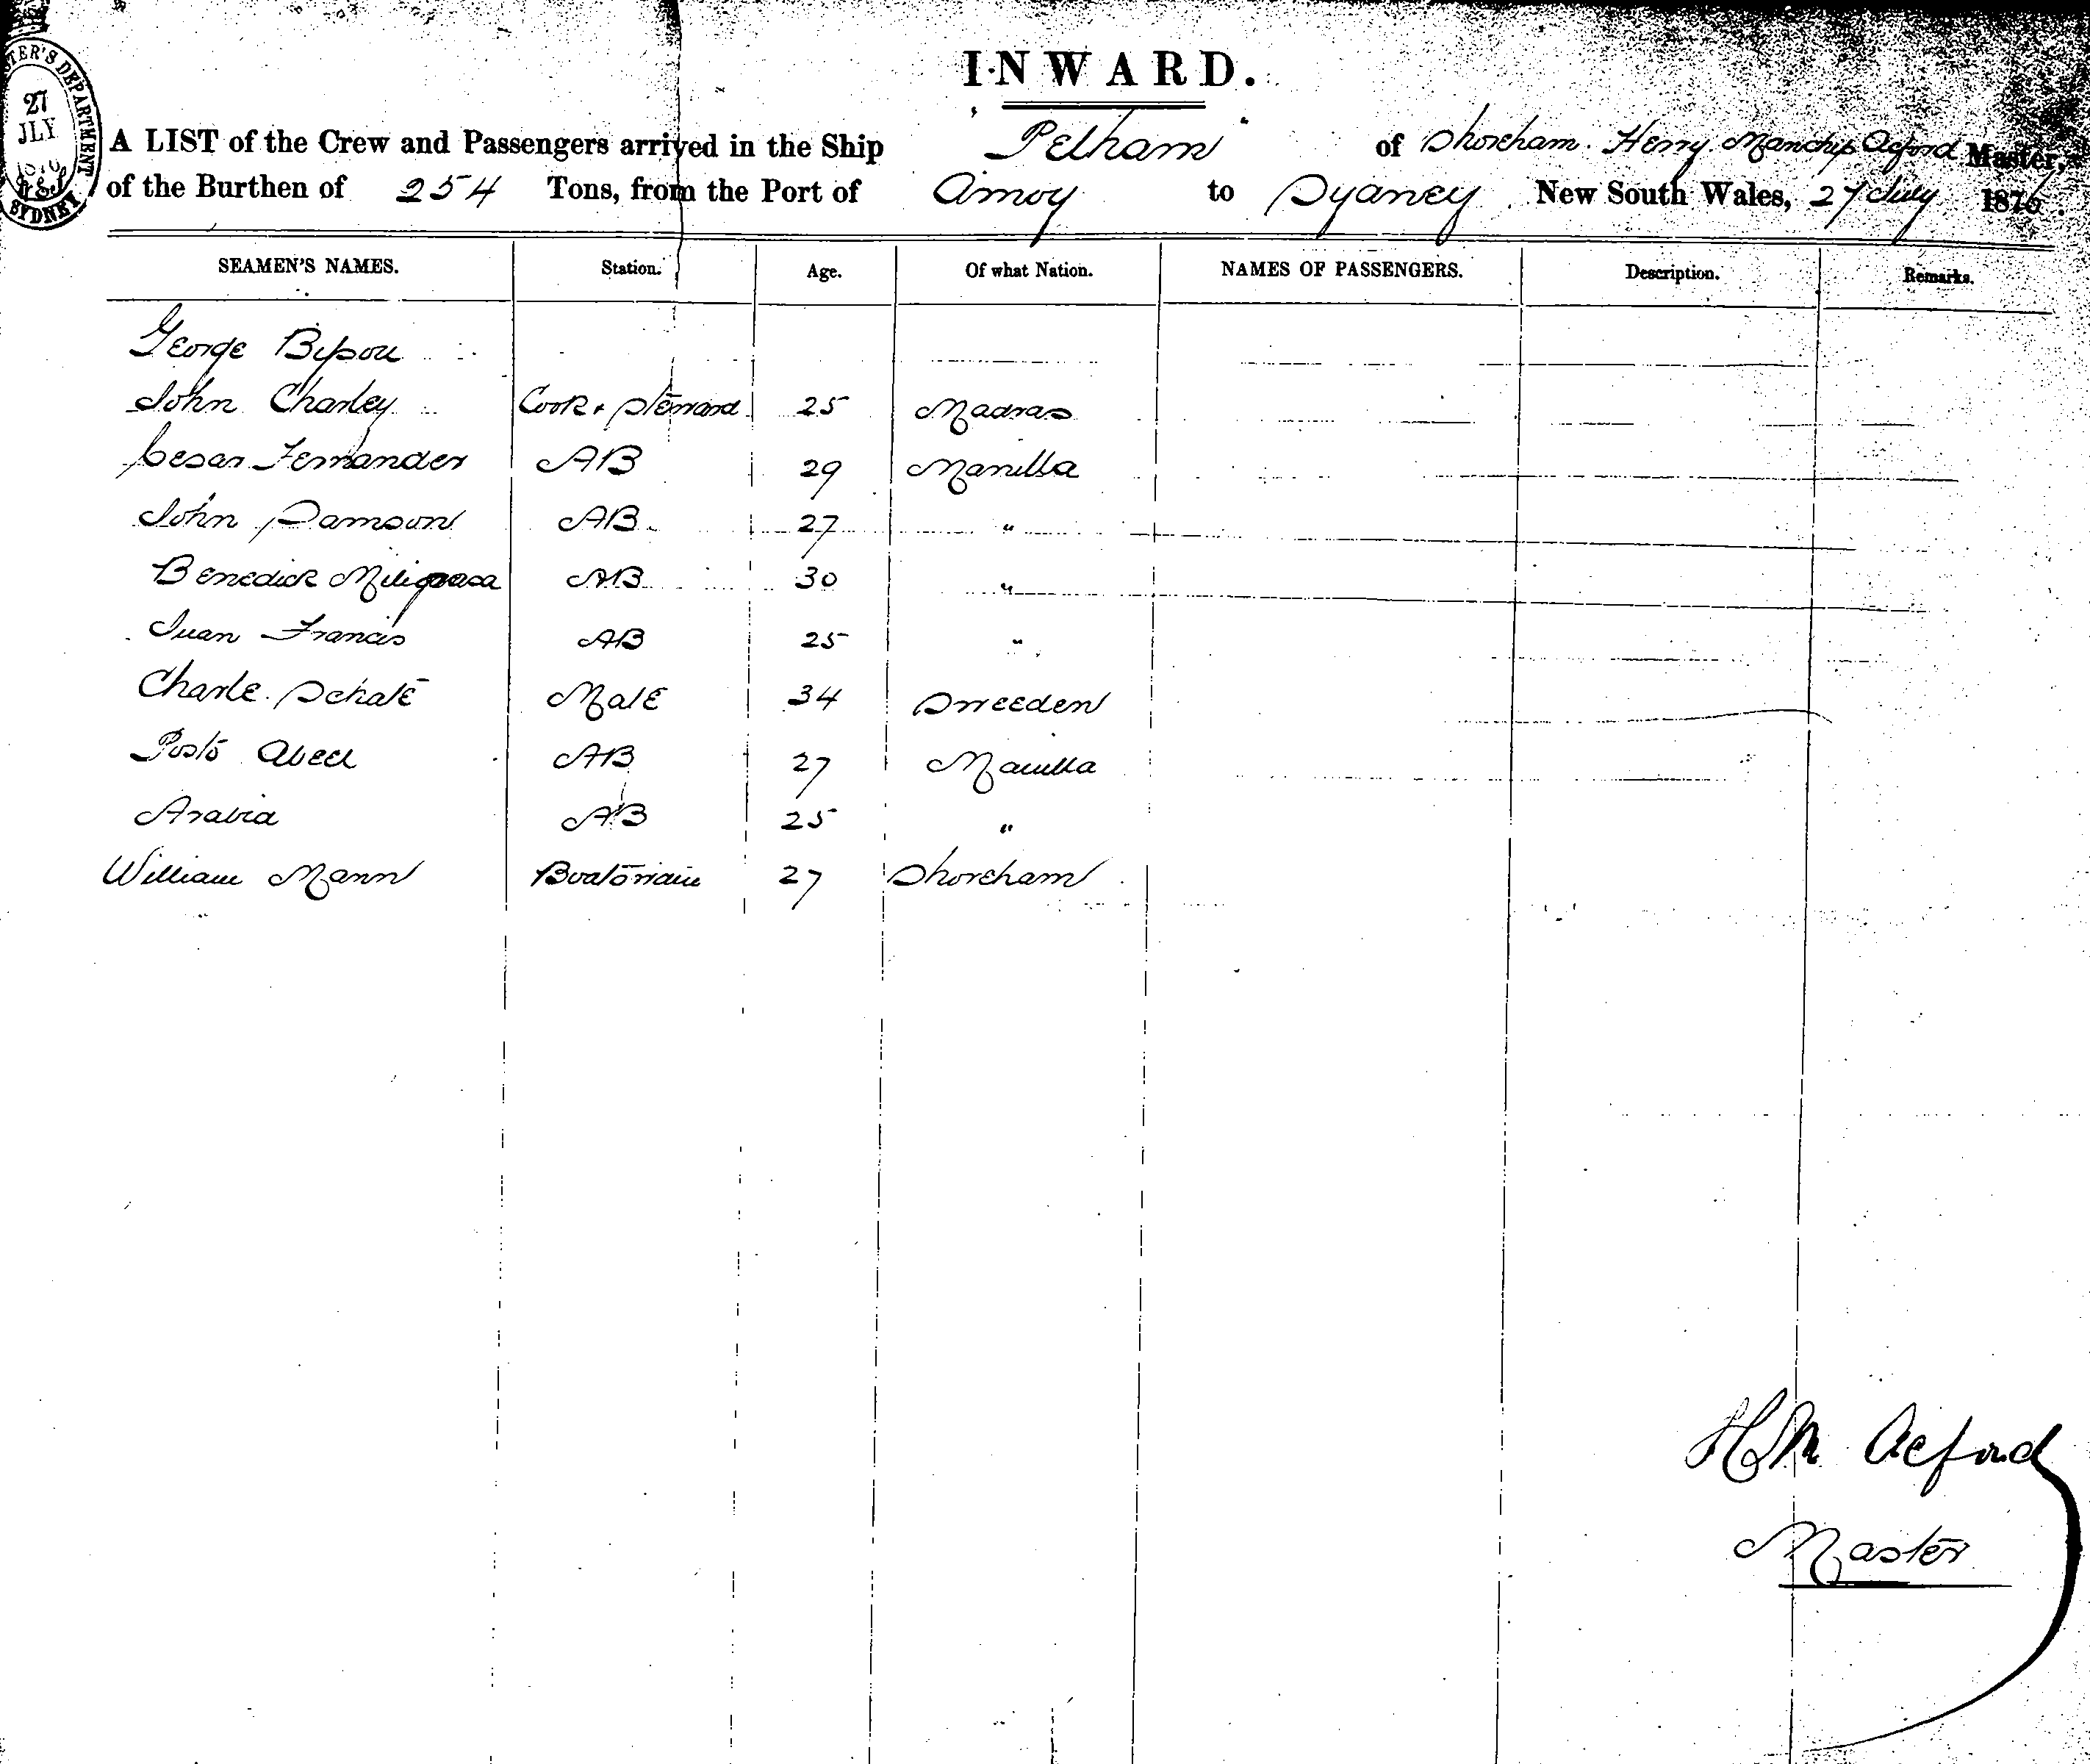 27
JLY
SYDNEY
INWARD.
A LIST of the Crew and Passengers arrived in the Ship "Pelham" of Shoreham. Henry Manchip Acford Master,
of the Burthen of 254 Tons, from the Port of Amoy to Sydney New South Wales, 27 July 1876.
SEAMEN'S NAMES. Station. Age. Of what Nation. NAMES OF PASSENGERS. Description. Remarks.
George
John Charley Cook & Steward 25 Madras
Cesar Fernander AB 29 Manilla
John Samson AB 27 "
Benedick AB 30 "
Juan Francis AB 25 "
Charle Schate Mate 34 Sweeden
AB 27 Manilla
Arabia AB 25 "
William Mann 27 Shoreham
HM Acford
Master